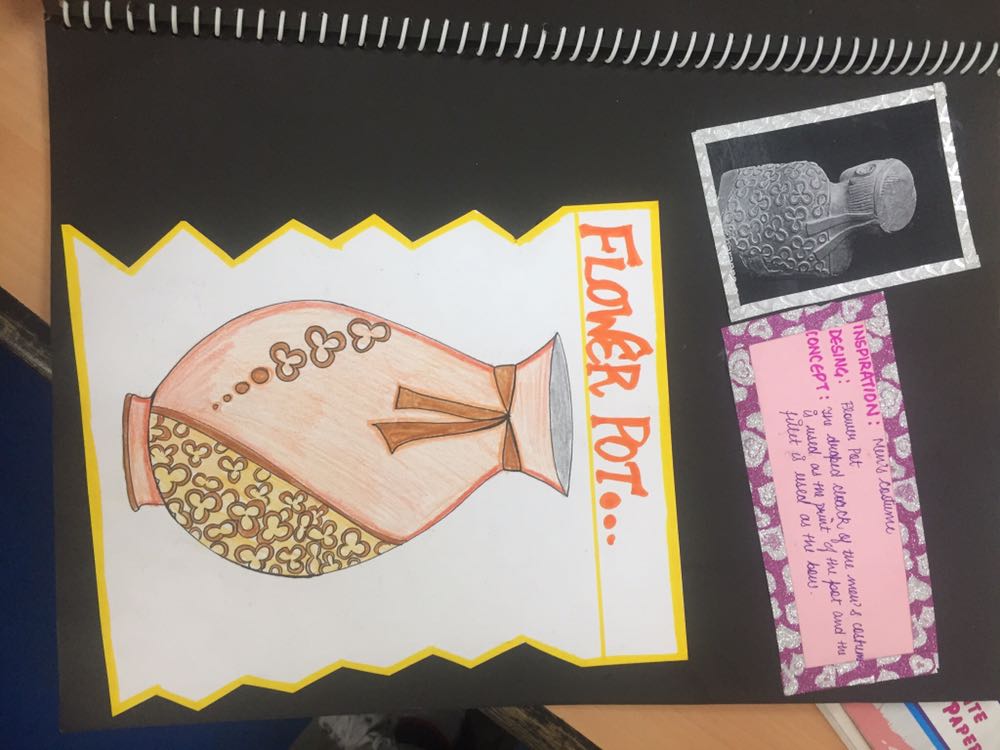 FLOWER POT...
INSPIRATION: Men's costume
DESING: Flower Pot
CONCEPT: The draped cloack of the men's costume
is used as the print of the pot and the
fillet is used as the bow.
PAPER